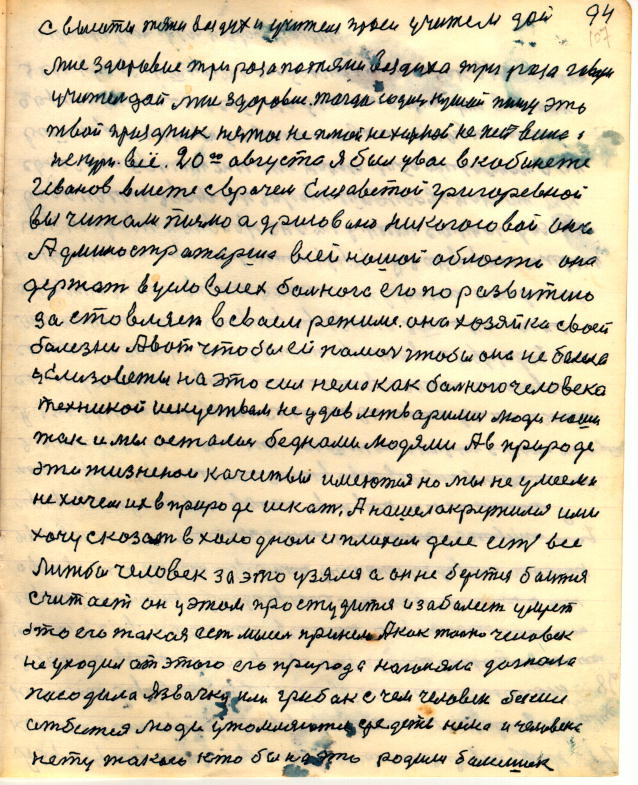 94
107
с высоты тяни воздух и учителя проси учитель дай
мне здоровие три раза потяни воздуха три раза говори
учител дай мне здоровие. тогда садис кушай пищу это
твой праздник не пей вина
не кури. всё. 20го августа Я был у вас в кабинете
Иванов вместе с врачем Елизаветой григоревной
вы читали писмо адрисовано
всей нашой области она
держат в условиех болного его по развитию
заставляет в своем режиме. она хозяйка своей
болезни А вот чтобы ей помоч чтобы она не болела
у Елизоветы на это сил нема как болного человека
техникой искуством не удовлетварилис люди наши
так и мы осталис бедными людями А в природе
эти жизненои качествы имеются но мы не умеем и
не хочем их в природе искат, А нашол окружился или
хочу сказат в холодном и плохом деле ест все
Лижбы человек за это узялся а он не берется боится
считает он у этом простудится и заболеит умрет
это его такая ест мысл принем А как толко человек
не уходил от этого его природа нагоняла догнала
посодила язвачку или грибок с чем человек бесси
отбится люди утомляются средств нема и человека
нету такого кто бы на это родилси